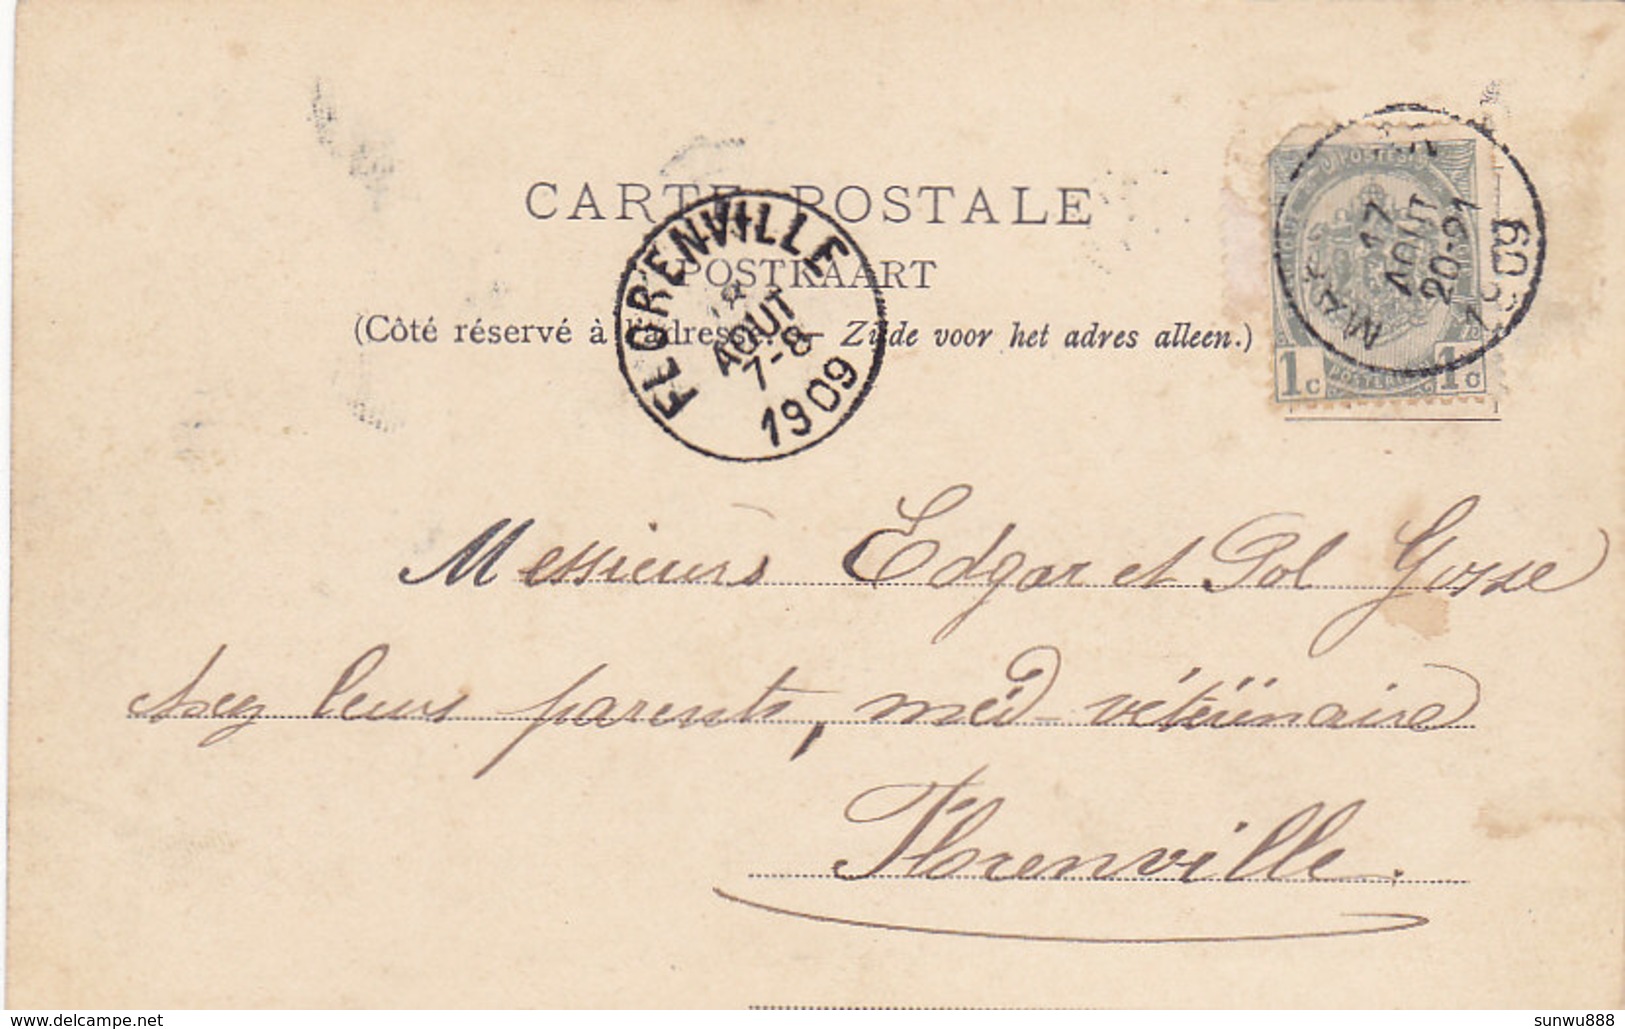 CARTE POSTALE
POSTKAART
(Côté réservé à l'adresse. — Zijde voor het adres alleen.)
FLORENVILLE
18
AOUT
7-8
1909
17
AOUT
20-21
1909
POSTES
1c 1c
Messieurs Edgar et Pol Gosse
chez leurs parents, méd-vétérinaire
Florenville.
sunwu888